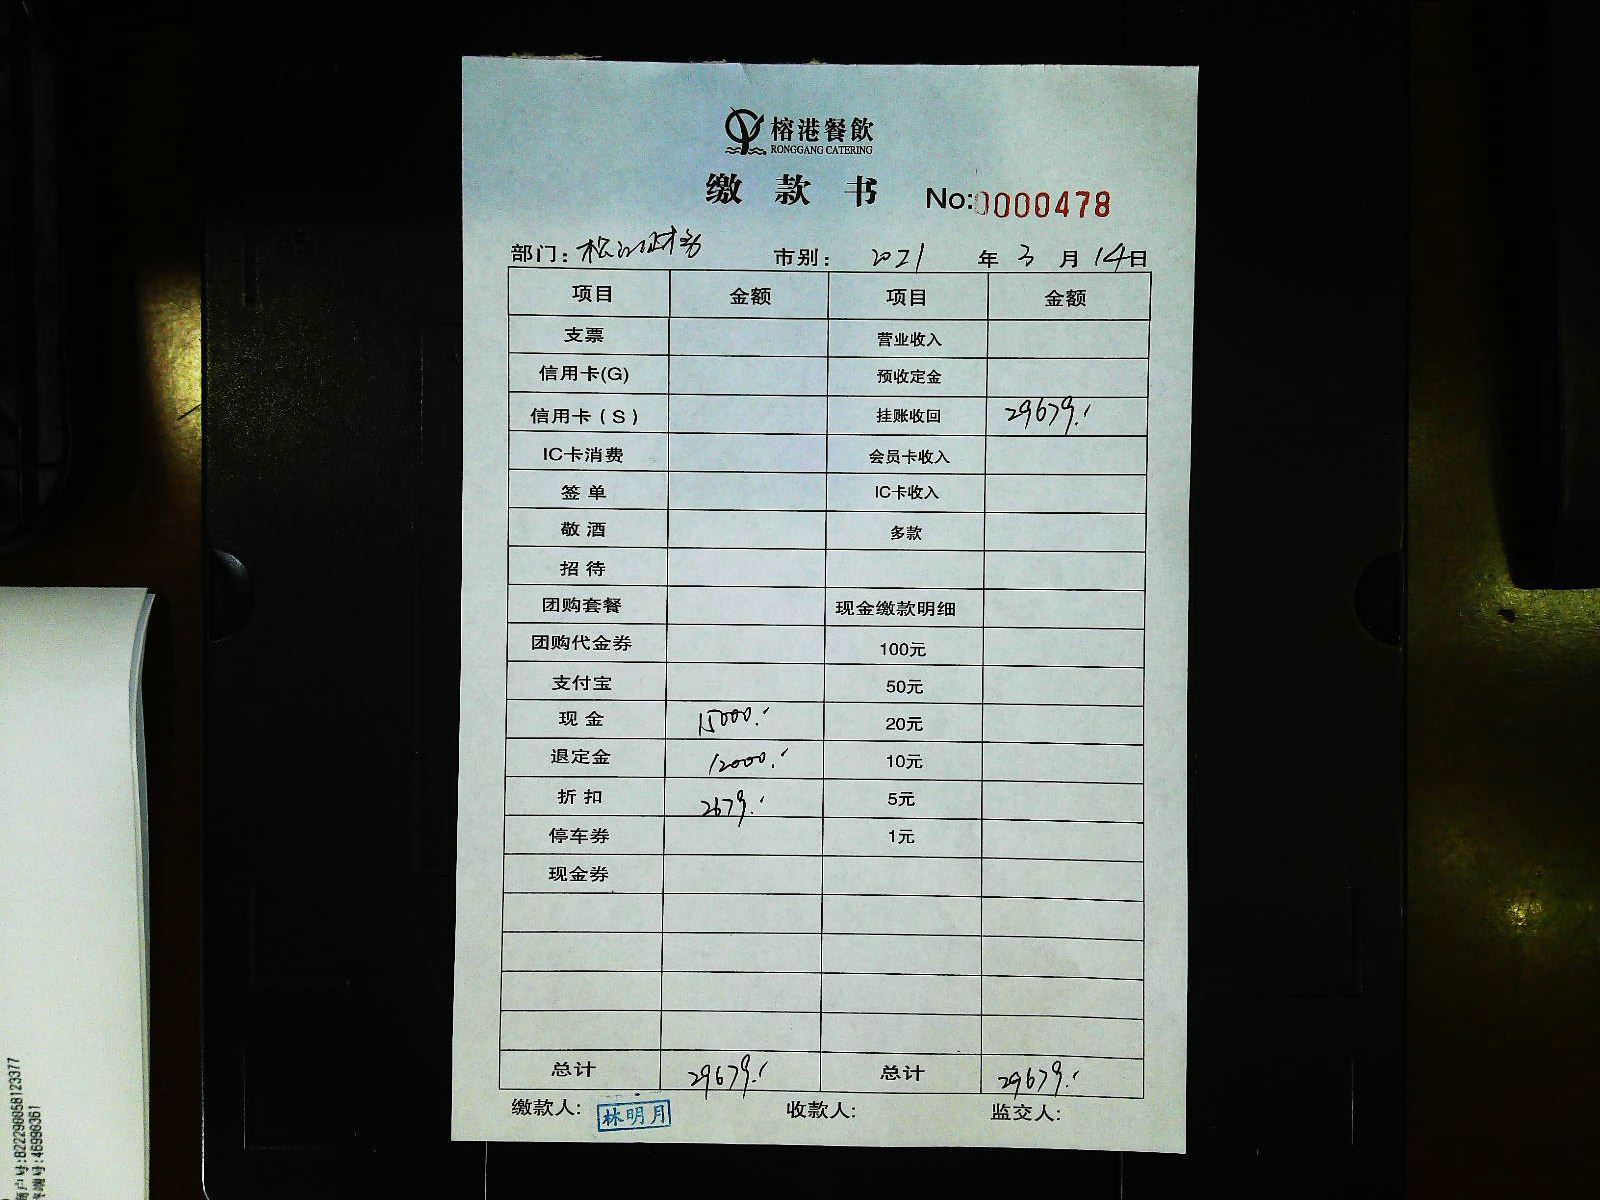 榕港餐飲
RONGGANG CATERING
缴 款 书 No:0000478
部门: 松江财务 市别: 2021 年 3 月 14日
项目 金额 项目 金额
支票 营业收入
信用卡(G) 预收定金
信用卡(S) 挂账收回 29679.-
IC卡消费 会员卡收入
签单 IC卡收入
敬酒 多款
招待
团购套餐 现金缴款明细
团购代金券 100元
支付宝 50元
现金 15000.- 20元
退定金 12000.- 10元
折扣 2679.- 5元
停车券 1元
现金券
总计 29679.- 总计 29679.-
缴款人: 林明月 收款人: 监交人:
商户号:822290058123377
终端号:46996361